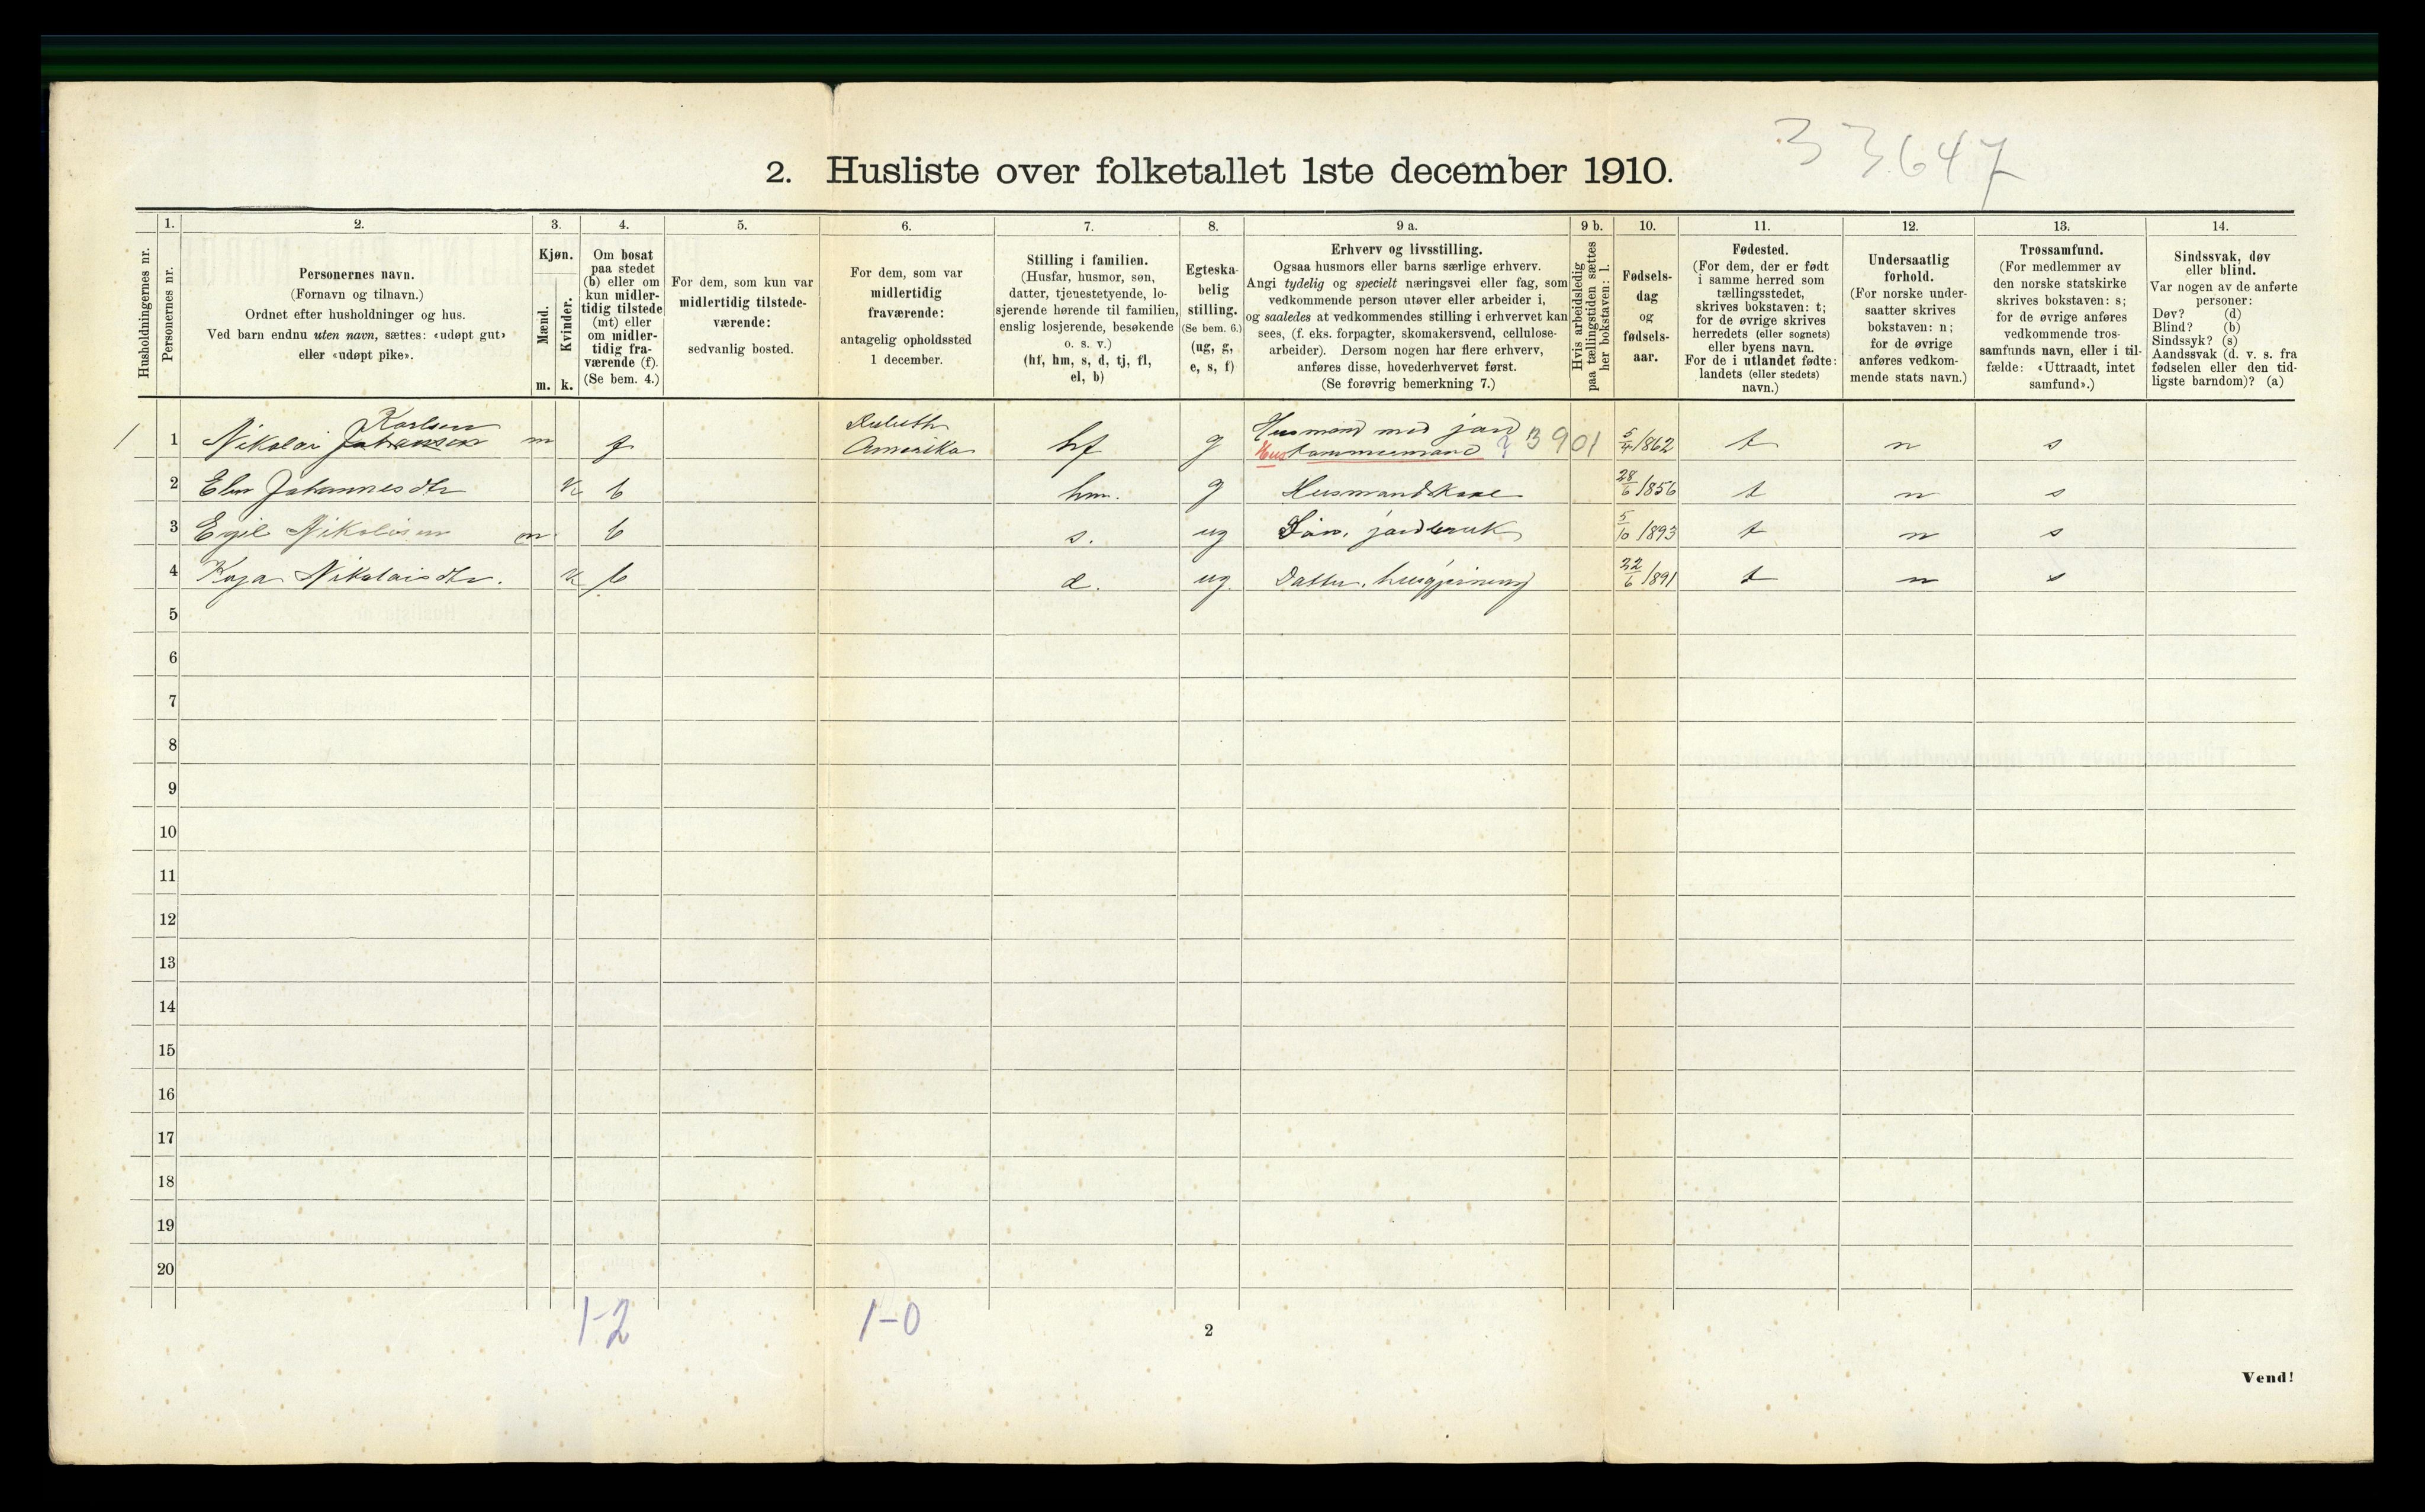 33647
2. Husliste over folketallet 1ste december 1910.
Husholdningernes nr.
1.
Personernes nr.
2.
Personernes navn.
(Fornavn og tilnavn.)
Ordnet efter husholdninger og hus.
Ved barn endnu uten navn, sættes: «udøpt gut»
eller «udøpt pike».
3.
Kjøn.
Mænd.
Kvinder.
m. k.
4.
Om bosat
paa stedet
(b) eller om
kun midler-
tidig tilstede
(mt) eller
om midler-
tidig fra-
værende (f).
(Se bem. 4.)
5.
For dem, som kun var
midlertidig tilstede-
værende:
sedvanlig bosted.
6.
For dem, som var
midlertidig
fraværende:
antagelig opholdssted
1 december.
7.
Stilling i familien.
(Husfar, husmor, søn,
datter, tjenestetyende, lo-
sjerende hørende til familien,
enslig losjerende, besøkende
o. s. v.)
(hf, hm, s, d, tj, fl,
el, b)
8.
Egteska-
belig
stilling.
(Se bem. 6.)
(ug, g,
e, s, f)
9 a.
Erhverv og livsstilling.
Ogsaa husmors eller barns særlige erhverv.
Angi tydelig og specielt næringsvei eller fag, som
vedkommende person utøver eller arbeider i,
og saaledes at vedkommendes stilling i erhvervet kan
sees, (f. eks. forpagter, skomakersvend, cellulose-
arbeider). Dersom nogen har flere erhverv,
anføres disse, hovederhvervet først.
(Se forøvrig bemerkning 7.)
9 b.
Hvis arbeidsledig
paa tællingstiden sættes
her bokstaven: l.
10.
Fødsels-
dag
og
fødsels-
aar.
11.
Fødested.
(For dem, der er født
i samme herred som
tællingsstedet,
skrives bokstaven: t;
for de øvrige skrives
herredets (eller sognets)
eller byens navn.
For de i utlandet fødte:
landets (eller stedets)
navn.)
12.
Undersaatlig
forhold.
(For norske under-
saatter skrives
bokstaven: n;
for de øvrige
anføres vedkom-
mende stats navn.)
13.
Trossamfund.
(For medlemmer av
den norske statskirke
skrives bokstaven: s;
for de øvrige anføres
vedkommende tros-
samfunds navn, eller i til-
fælde: «Uttraadt, intet
samfund».)
14.
Sindssvak, døv
eller blind.
Var nogen av de anførte
personer:
Døv? (d)
Blind? (b)
Sindssyk? (s)
Aandssvak (d. v. s. fra
fødselen eller den tid-
ligste barndom)? (a)
Karlsen Husmand med jord
1 1 Nikolai Johansen m f Amerika hf g 3901 5/4 1862 t n s
2 Johannesdtr k b hm. g Husmandskone 28/6 1856 t n s
3 Egil Nikolaisen m b s. ug Søn, jordbruk 5/10 1893 t n s
4 Kaja Nikolaisdtr. k b d. ug Datter, husgjerning 22/6 1891 t n s
5
6
7
8
9
10
11
12
13
14
15
16
17
18
19
20
1-2 1-0
2
Vend!